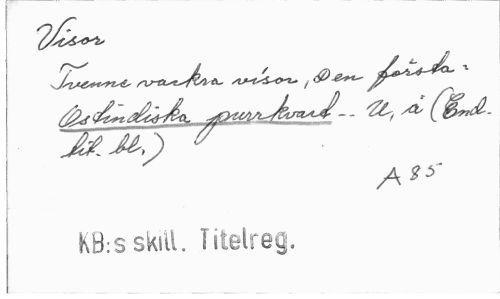 Visor
Tvenne vackra visor, Den första:
Ostindiska purrkvard -- U, å (End.
tit. bl.)
A 85
KB:s skill. Titelreg.